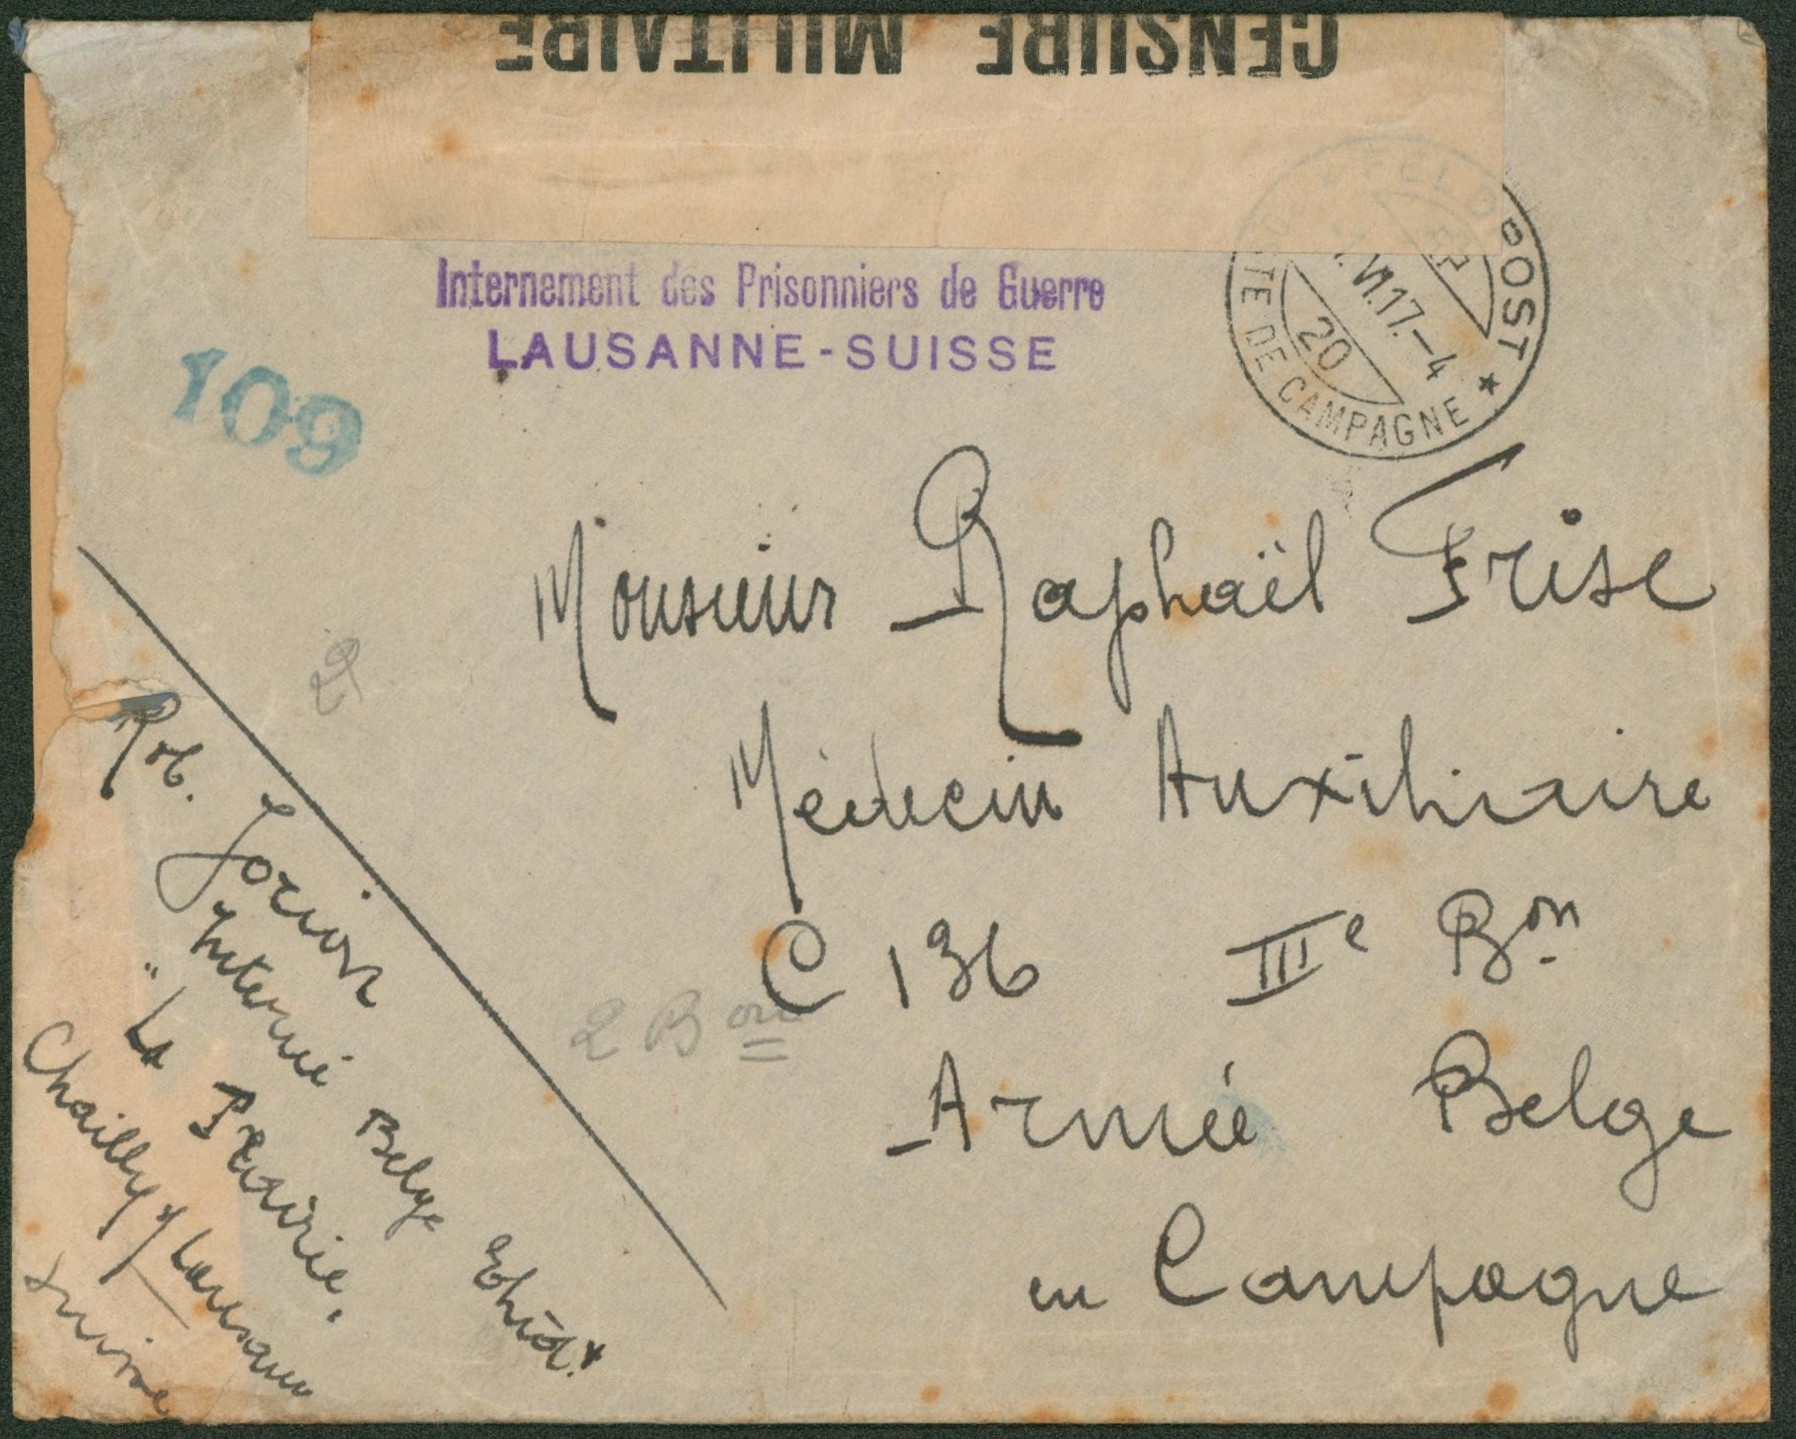 CENSURE MILITAIRE
Internement des Prisonniers de Guerre
LAUSANNE-SUISSE
FELDPOST
VI.17.-4
20
POSTE DE CAMPAGNE
109
Monsieur Raphaël Frise
2
Médecin Auxiliaire
C 136 IIIe Bon
2 Bon
Armée Belge
en Campagne
Rob. Jorion
Interné Belge Etud.t
"La Prairie,
Chailly s/ Lausanne
Suisse